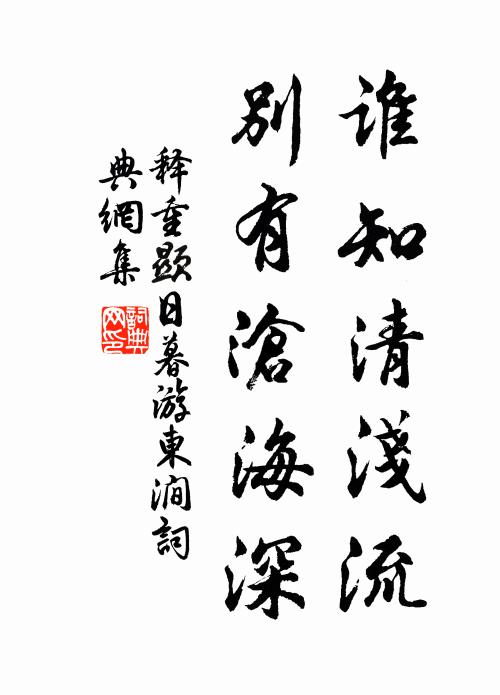 誰知清淺流
別有滄海深
释重顯日暮游東澗詞
典網集
詞典網印